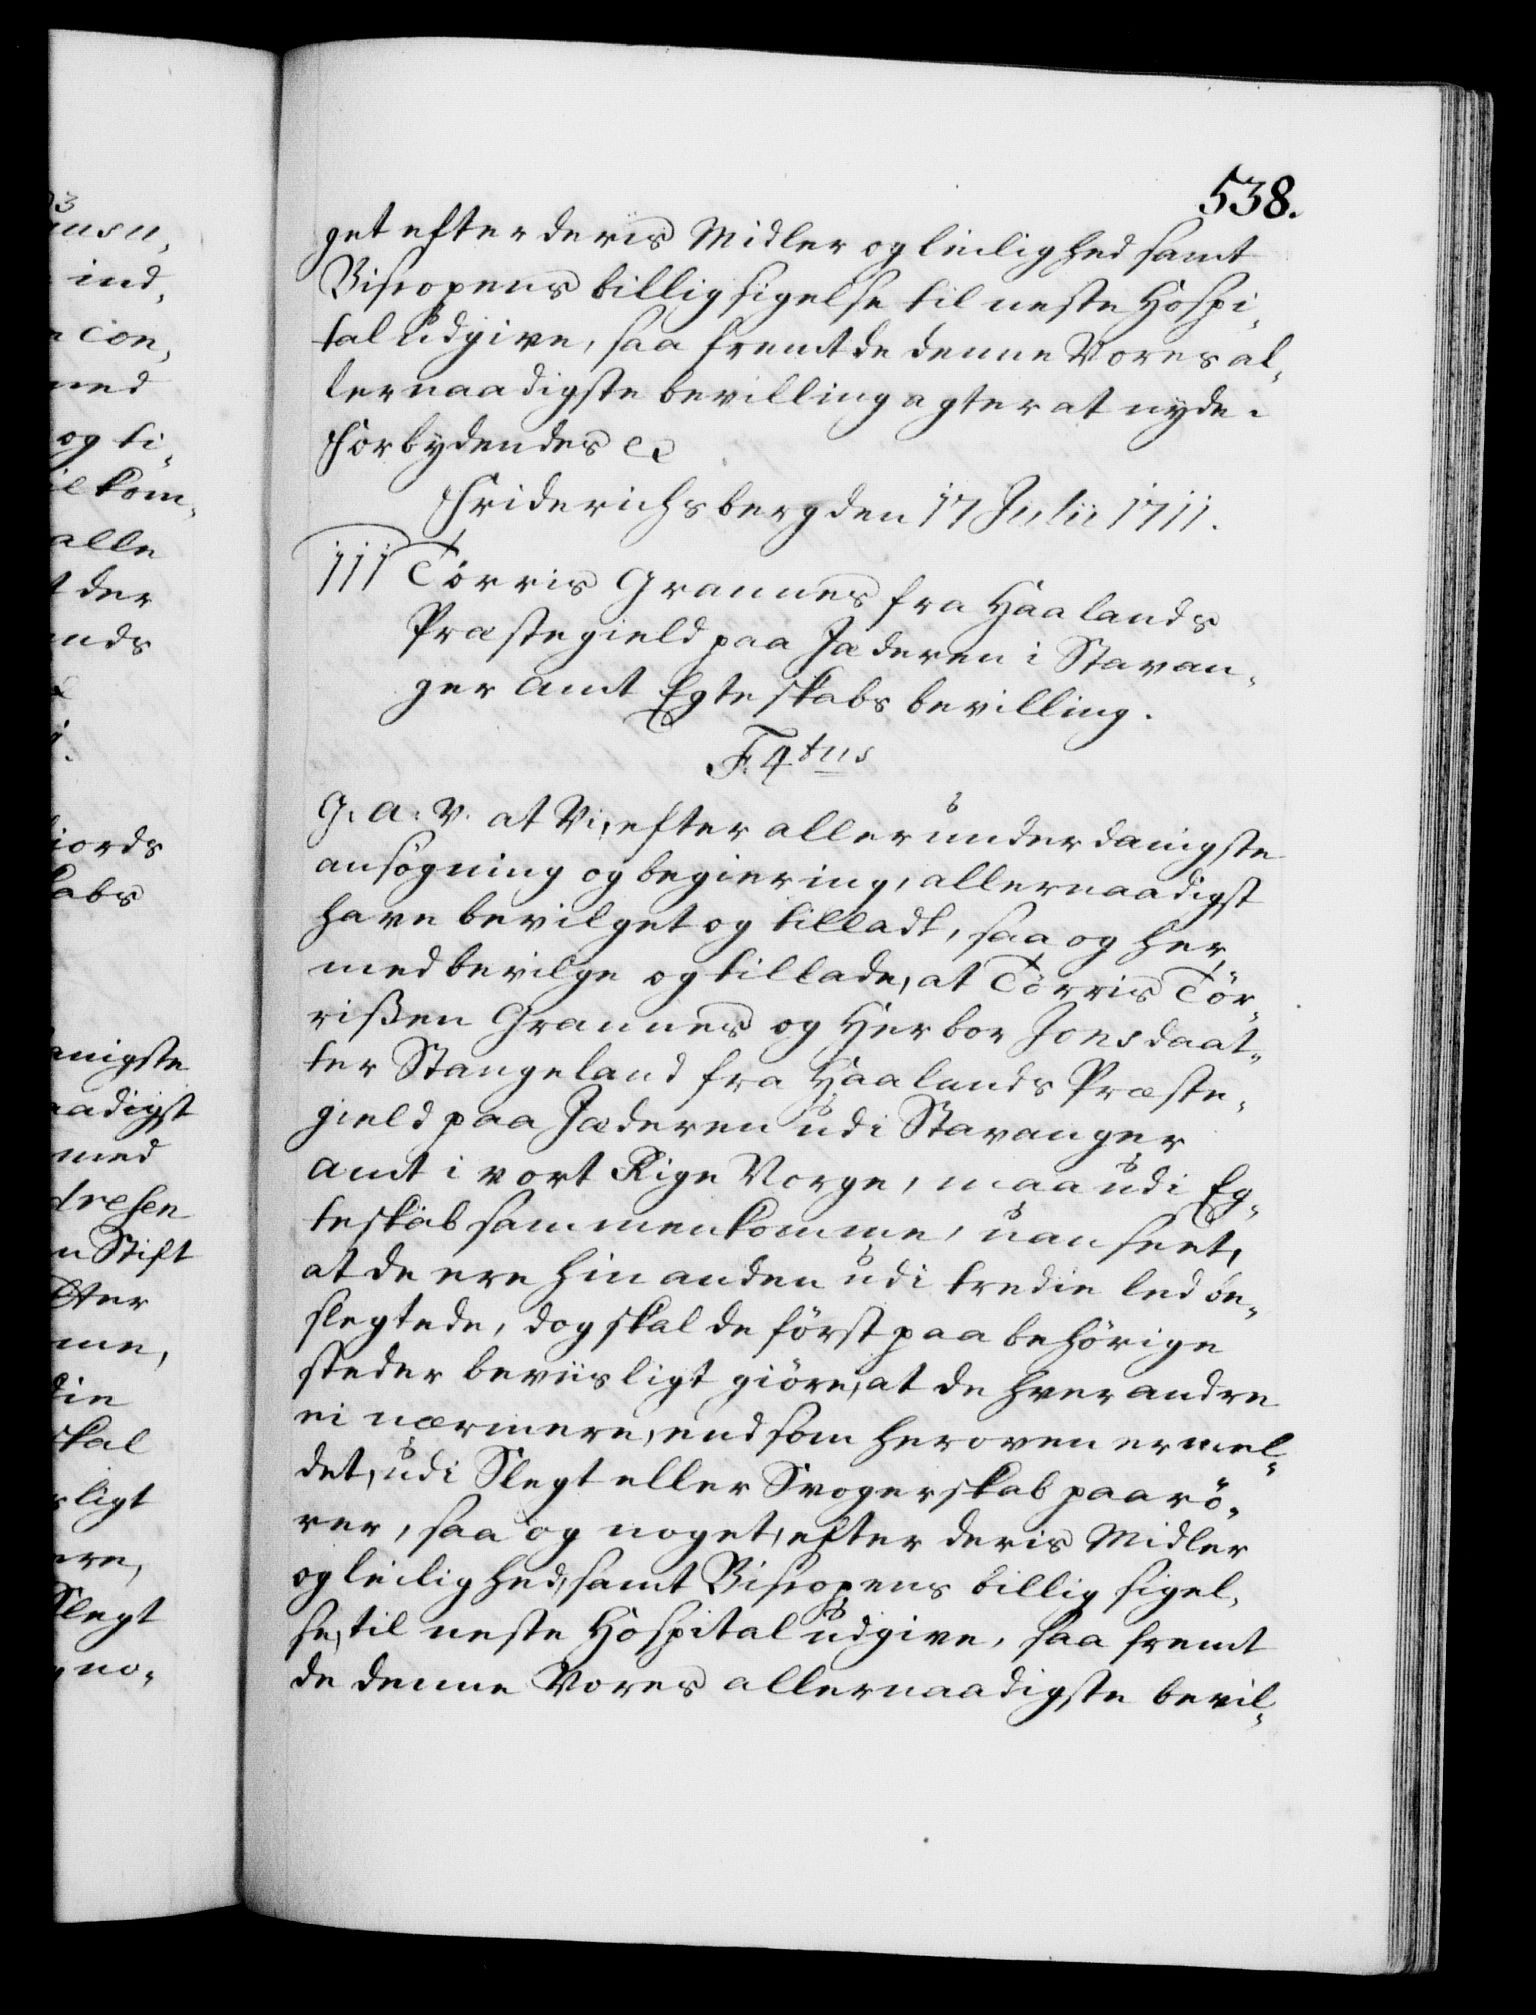 538.
get efter deris Midler og leilighed samt
Biscopens billig sigelse til neste Hospi,
tal udgive, saa fremt de denne Vores al,
lernaadigste bevilling agter at nyde.
Forbydendes etc
Friderichsberg den 17 Julii 1711.
111 Törris Grannes fra Haalands
Præstegield paa Jæderen i Stavan,
ger amt Egteskabs bevilling.
F. 4tus
G. A. V. at Vi, efter aller underdanigste
ansögning og begiering, allernaadigst
have bevilget og tilladt, saa og her,
med bevilge og tillade, at Törris Tör,
rißen Grannes og Herbor Jonsdaat,
ter Stangeland fra Haalands Præste,
gield paa Jæderen udi Stavanger
amt i vort Rige Norge, maa udi Eg,
teskab sammenkomme, uanseet,
at de ere hinanden udi tredie led be,
slegtede, dog skal de först paa behörige
steder beviisligt giöre, at de hverandre
ei nærmere, end som heroven ermel,
det, udi Slegt eller Svogerskab paarö,
rer, saa og noget, efter deris Midler
og leilighed, samt Biscopens billig sigel,
se, til neste Hospital udgive, saa fremt
de denne Vores allernaadigste bevil,
ind,
con,
med
og ti,
kom,
alle
der
fiords
kabs
anigste
aadigst
med
dresen
Stift
tter
me,
die
skal
ligt
ere,
Slegt
no,